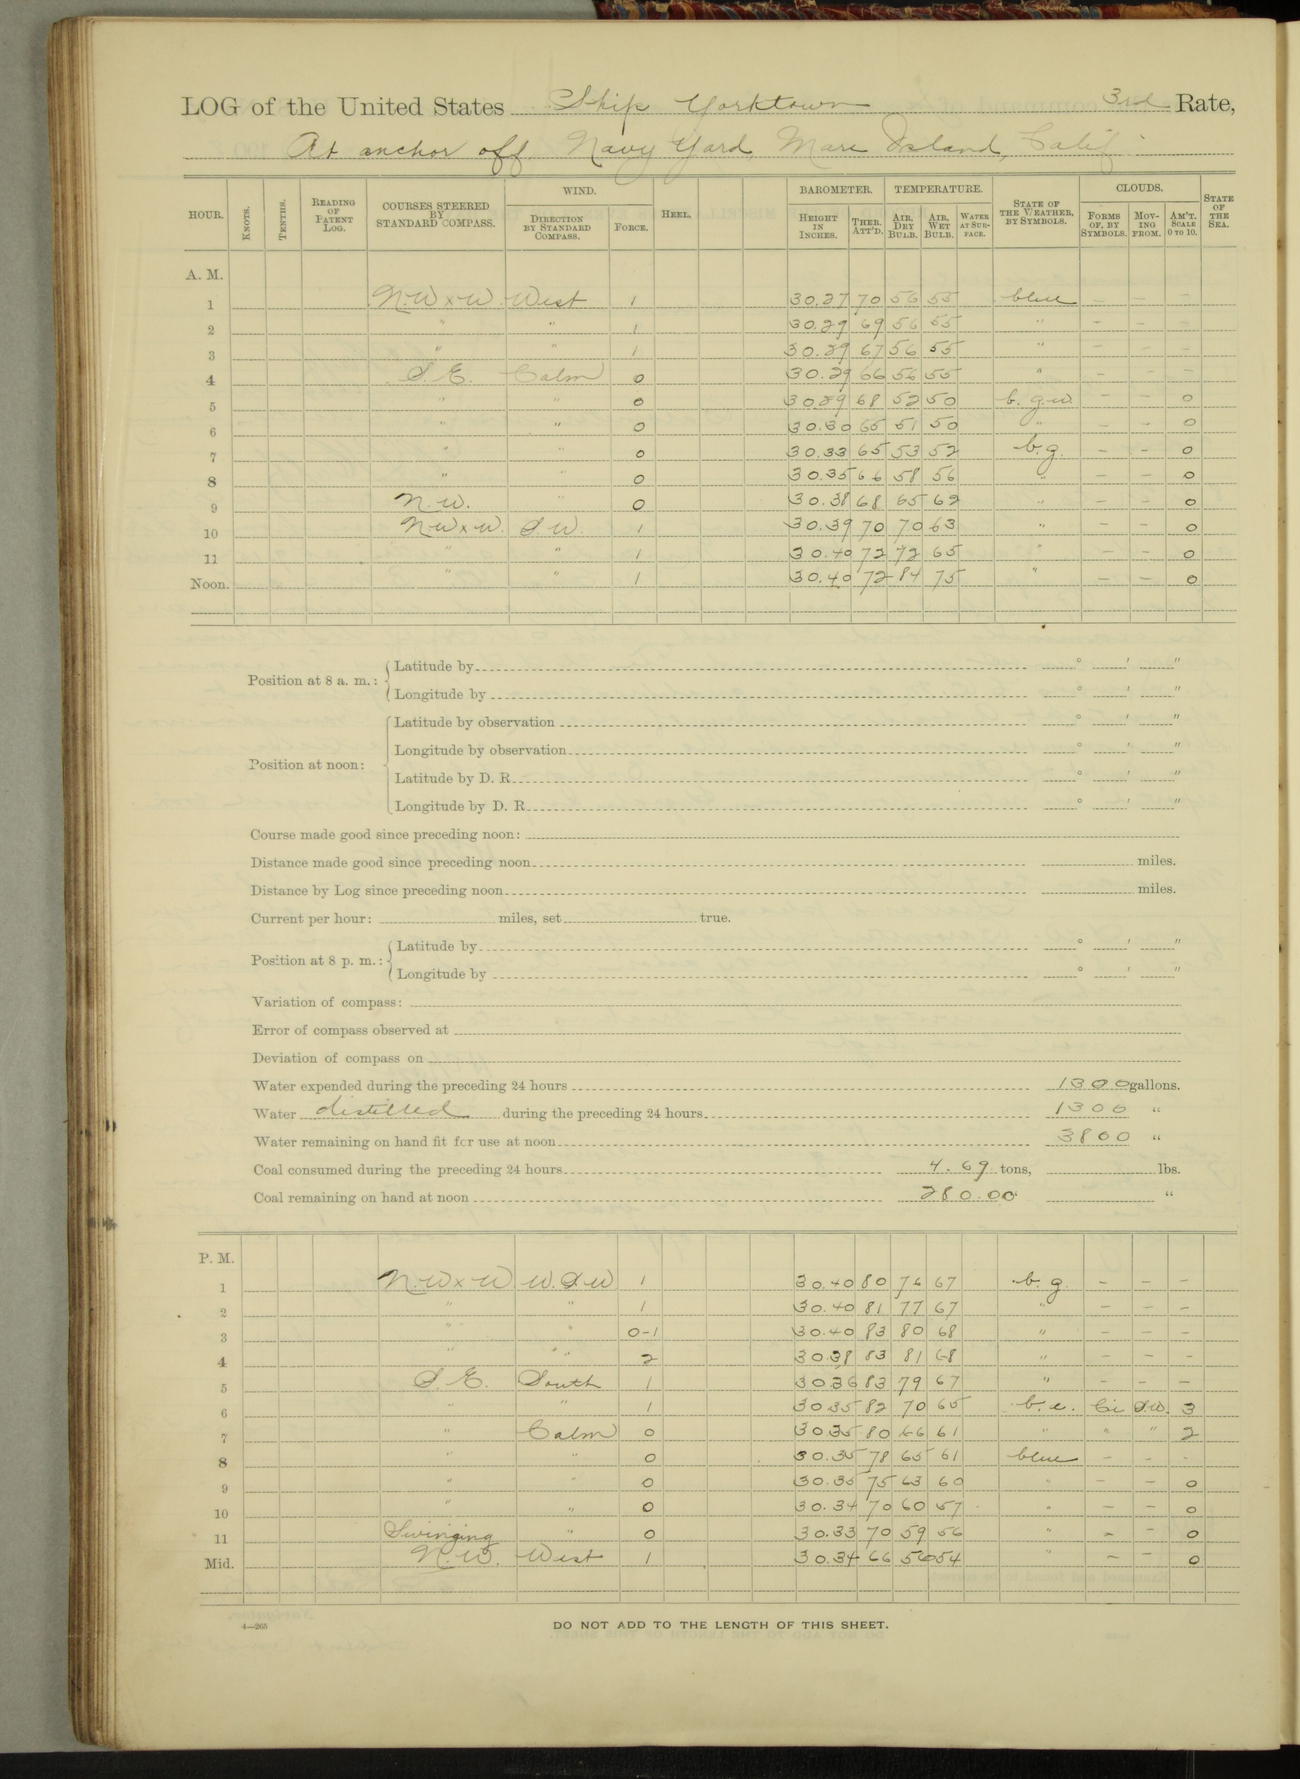 LOG of the United States Ship Yorktown 3rd Rate,
At anchor off Navy Yard, Mare Island, Calif.
HOUR. KNOTS. TENTHS. READING OF PATENT LOG. COURSES STEERED BY STANDARD COMPASS. WIND. DIRECTION BY STANDARD COMPASS. FORCE. HEEL. BAROMETER. HEIGHT IN INCHES. THER. ATT'D. TEMPERATURE. AIR, DRY BULB. AIR, WET BULB. WATER AT SURFACE. STATE OF THE WEATHER, BY SYMBOLS. CLOUDS. FORMS OF, BY SYMBOLS. MOVING FROM. AM'T. SCALE 0 TO 10. STATE OF THE SEA.
A. M.
1 N.W x W. West 1 30.27 70 56 55 blue – – –
2 " " 1 30.29 69 56 55 " – – –
3 " " 1 30.29 67 56 55 " – – –
4 S.E. Calm 0 30.29 66 56 55 " – – –
5 " " 0 30.29 68 52 50 b. g.w – – 0
6 " " 0 30.30 65 51 50 " – – 0
7 " " 0 30.33 65 53 52 b.g. – – 0
8 " " 0 30.35 66 58 56 " – – 0
9 N.W. " 0 30.38 68 65 62 " – – 0
10 N W x W. S W. 1 30.39 70 70 63 " – – 0
11 " " 1 30.40 72 72 65 " – – 0
Noon. " " 1 30.40 72 84 75 " – – 0
Position at 8 a. m.: Latitude by ° ′ ″
Longitude by ° ′ ″
Position at noon: Latitude by observation ° ′ ″
Longitude by observation ° ′ ″
Latitude by D. R. ° ′ ″
Longitude by D. R. ° ′ ″
Course made good since preceding noon:
Distance made good since preceding noon miles.
Distance by Log since preceding noon miles.
Current per hour: miles, set true.
Position at 8 p. m.: Latitude by ° ′ ″
Longitude by ° ′ ″
Variation of compass:
Error of compass observed at
Deviation of compass on
Water expended during the preceding 24 hours 1300 gallons.
Water distilled during the preceding 24 hours 1300 "
Water remaining on hand fit for use at noon 3800 "
Coal consumed during the preceding 24 hours 4.69 tons, lbs.
Coal remaining on hand at noon 280.00 "
P. M.
1 N.W x W W.S W 1 30.40 80 76 67 b. g. – – –
2 " " 1 30.40 81 77 67 " – – –
3 " " 0-1 30.40 83 80 68 " – – –
4 " " 2 30.38 83 81 68 " – – –
5 S.E. South 1 30.36 83 79 67 " – – –
6 " " 1 30.35 82 70 65 b.c. Ci S.W. 3
7 " Calm 0 30.35 80 66 61 " " " 2
8 " " 0 30.35 78 65 61 blue – – -
9 " " 0 30.35 75 63 60 " – – 0
10 " " 0 30.34 70 60 57 " – – 0
11 Swinging " 0 30.33 70 59 56 " – – 0
Mid. N.W. West 1 30.34 66 56 54 " – – 0
4—265
DO NOT ADD TO THE LENGTH OF THIS SHEET.